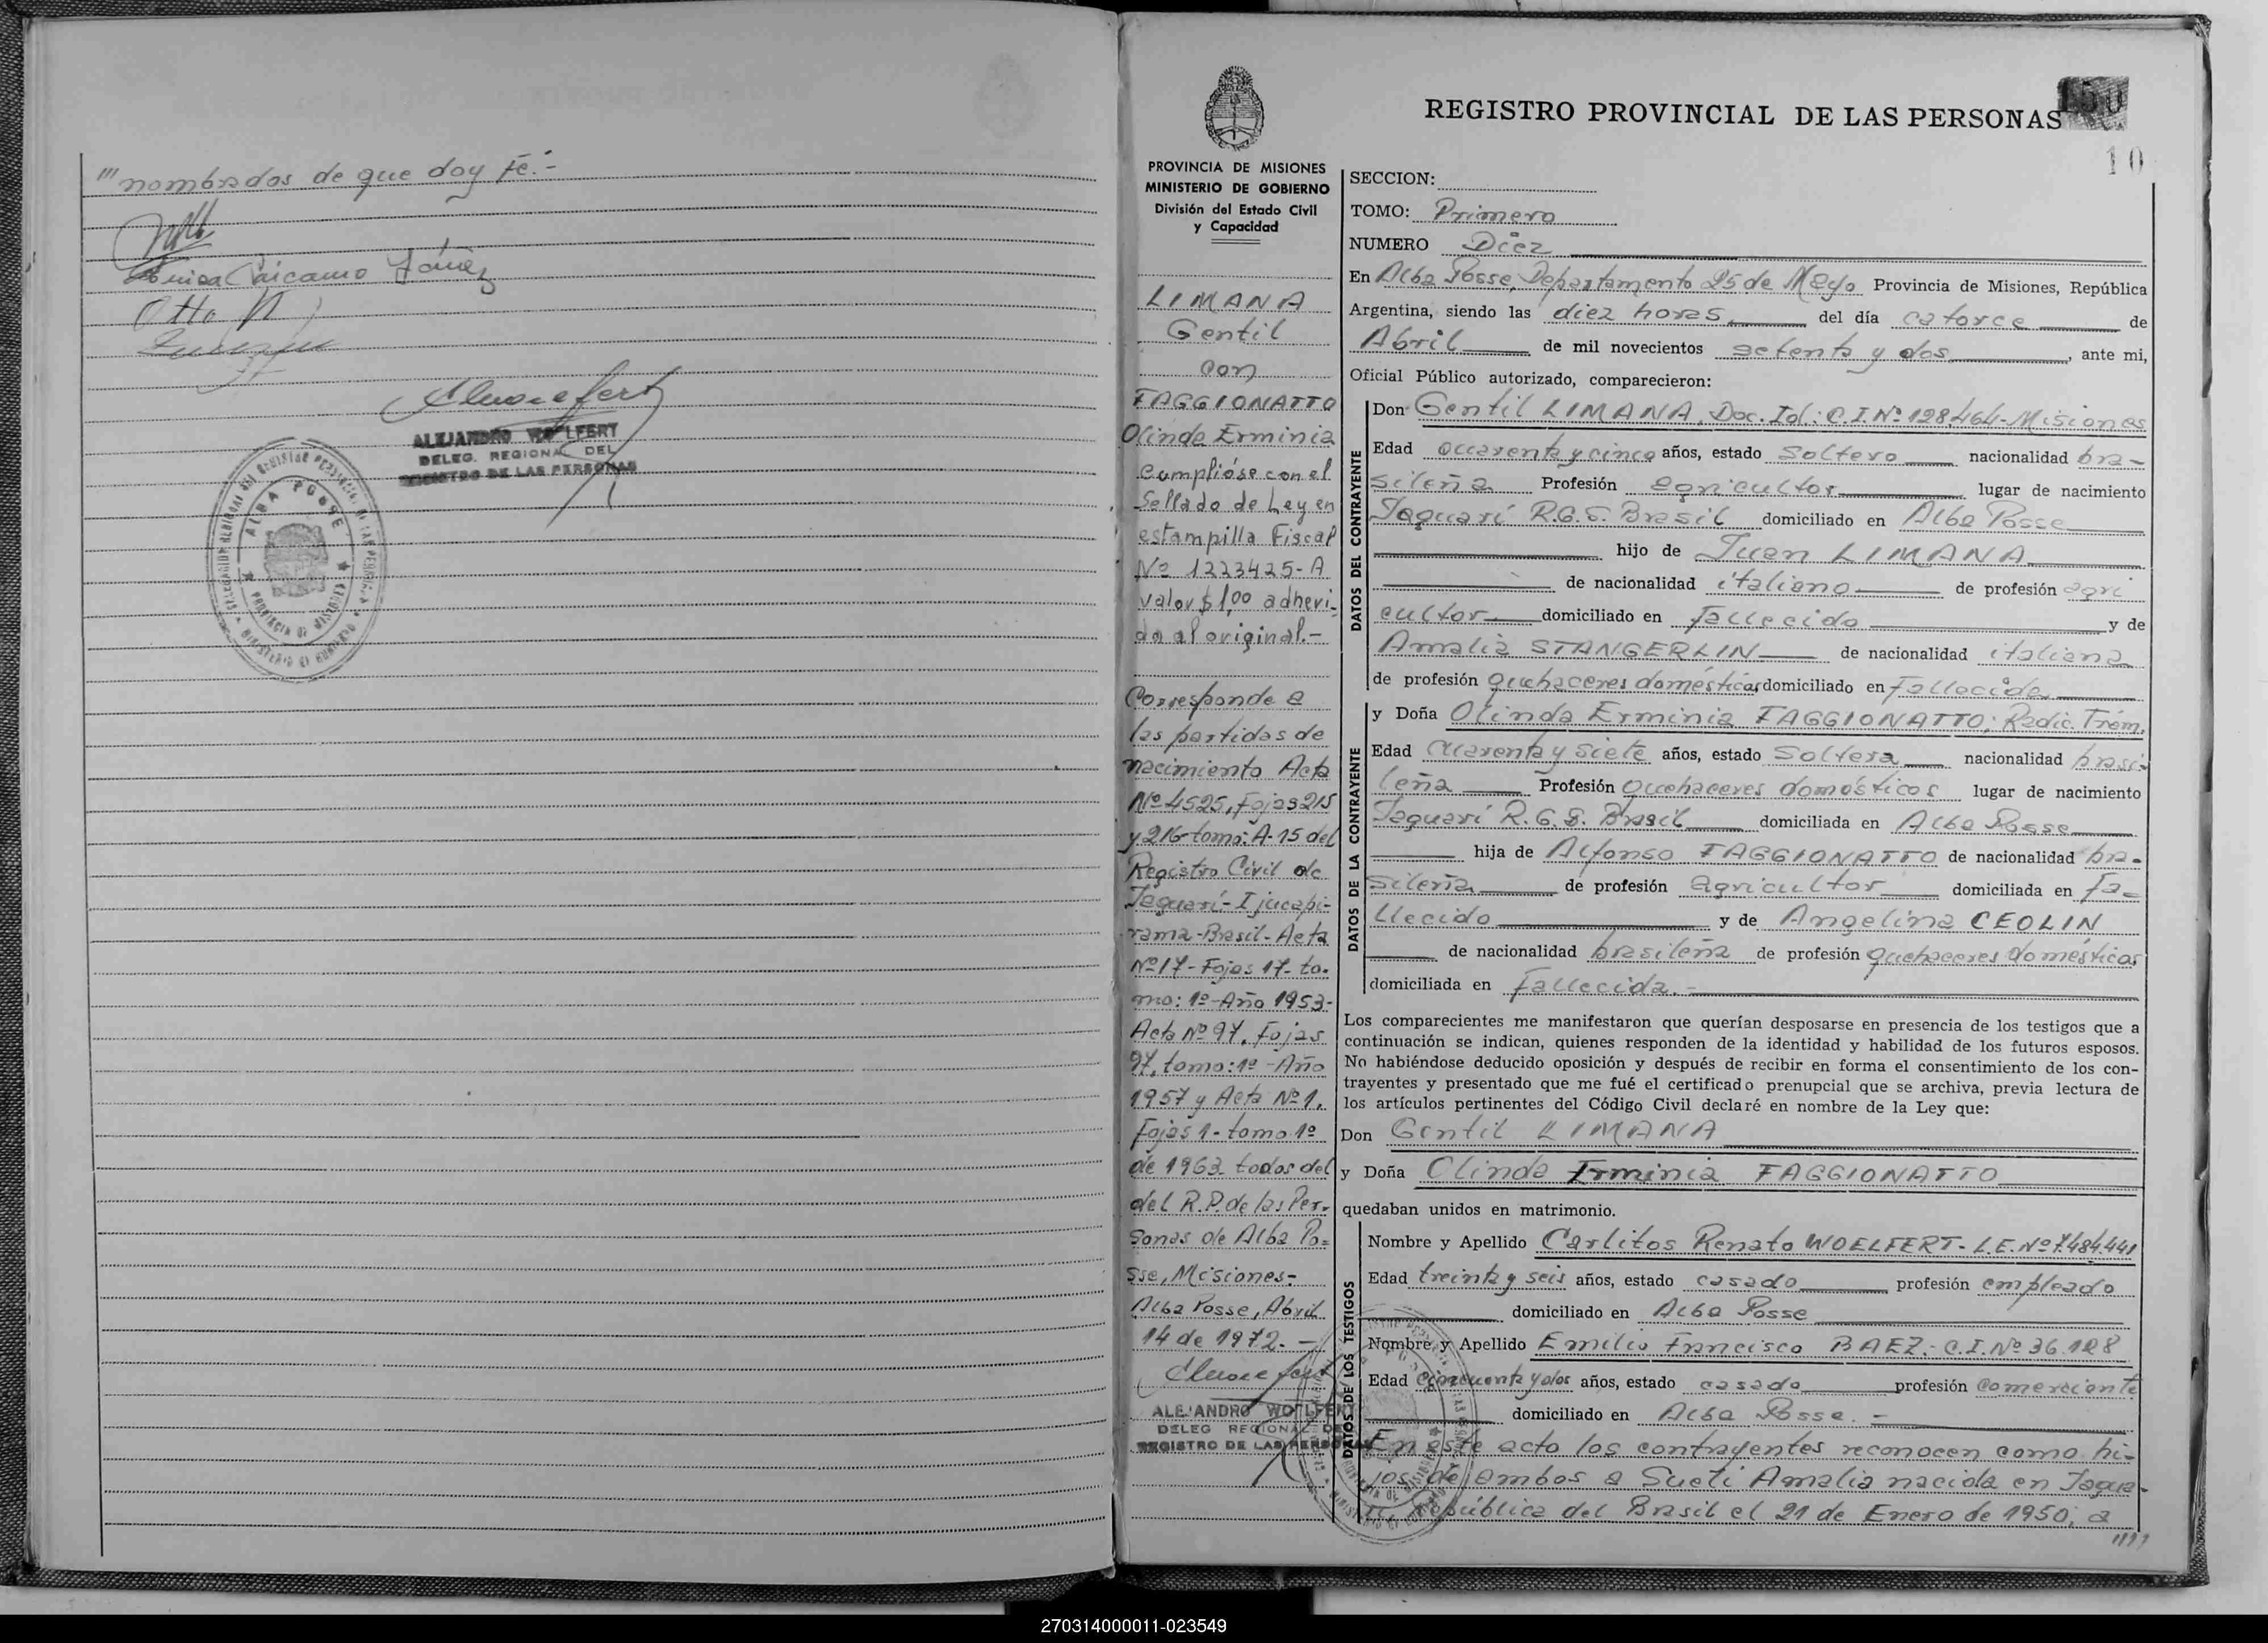 "' nombrados de que doy Fé.-
Otto
ALEJANDRO WOELFERT
DELEG. REGIONAL DEL
REGISTRO DE LAS PERSONAS
ALBA POSSE
PROVINCIA DE MISIONES
PROVINCIA DE MISIONES
MINISTERIO DE GOBIERNO
División del Estado Civil
y Capacidad
LIMANA
Gentil
con
FAGGIONATTO
Olinda Erminia
Cumplióse con el
Sellado de Ley en
estampilla Fiscal
Nº 1223425-A
valor $ 1,00 adheri-
da al original.-
Corresponde a
las partidas de
nacimiento Acta
Nº 4525, Fojas 215
y 216-tomo: A-15 del
Registro Civil de
Jaguarí-Ijucapi-
rama-Brasil-Acta
Nº 17-Fojas 17-to-
mo: 1º-Año 1953-
Acta Nº 97, Fojas
97, tomo: 1º-Año
1957 y Acta Nº 1,
Fojas 1-tomo 1º
de 1963 todos del
del R.P. de las Per-
sonas de Alba Po-
sse, Misiones-
Alba Posse, Abril
14 de 1972.-
ALEJANDRO WOELFERT
DELEG REGIONAL DEL
REGISTRO DE LAS PERSONAS
REGISTRO PROVINCIAL DE LAS PERSONAS
10
SECCION:
TOMO: Primero
NUMERO Diez
En Alba Posse, Departamento 25 de Mayo Provincia de Misiones, República
Argentina, siendo las diez horas del día catorce de
Abril de mil novecientos setenta y dos, ante mi,
Oficial Público autorizado, comparecieron:
DATOS DEL CONTRAYENTE
Don Gentil LIMANA, Doc. Id.: C.I. Nº 128.464-Misiones
Edad cuarenta y cinco años, estado soltero nacionalidad bra-
sileña Profesión agricultor lugar de nacimiento
Jaguarí R.G.S. Brasil domiciliado en Alba Posse
hijo de Juan LIMANA
de nacionalidad italiano de profesión agri
cultor domiciliado en fallecido y de
Amalia STANGERLIN de nacionalidad italiana
de profesión quehaceres domésticos domiciliado en fallecida
DATOS DE LA CONTRAYENTE
y Doña Olinda Erminia FAGGIONATTO; Radic. Trám.
Edad cuarenta y siete años, estado soltera nacionalidad brasi-
leña Profesión quehaceres domésticos lugar de nacimiento
Jaguarí R.G.S. Brasil domiciliada en Alba Posse
hija de Alfonso FAGGIONATTO de nacionalidad bra-
sileña de profesión agricultor domiciliada en fa-
llecido y de Angelina CEOLIN
de nacionalidad brasileña de profesión quehaceres domésticos
domiciliada en fallecida.-
Los comparecientes me manifestaron que querían desposarse en presencia de los testigos que a
continuación se indican, quienes responden de la identidad y habilidad de los futuros esposos.
No habiéndose deducido oposición y después de recibir en forma el consentimiento de los con-
trayentes y presentado que me fué el certificado prenupcial que se archiva, previa lectura de
los artículos pertinentes del Código Civil declaré en nombre de la Ley que:
Don Gentil LIMANA
y Doña Olinda Erminia FAGGIONATTO
quedaban unidos en matrimonio.
DATOS DE LOS TESTIGOS
Nombre y Apellido Carlitos Renato WOELFERT-L.E. Nº 7.484.441
Edad treinta y seis años, estado casado profesión empleado
domiciliado en Alba Posse
Nombre y Apellido Emilio Francisco BAEZ.-C.I. Nº 36.128
Edad cincuenta y dos años, estado casado profesión comerciante
domiciliado en Alba Posse.-
En este acto los contrayentes reconocen como hi-
jos de ambos a Sueti Amalia nacida en Jagua-
rí República del Brasil el 21 de Enero de 1950; a
""
270314000011-023549